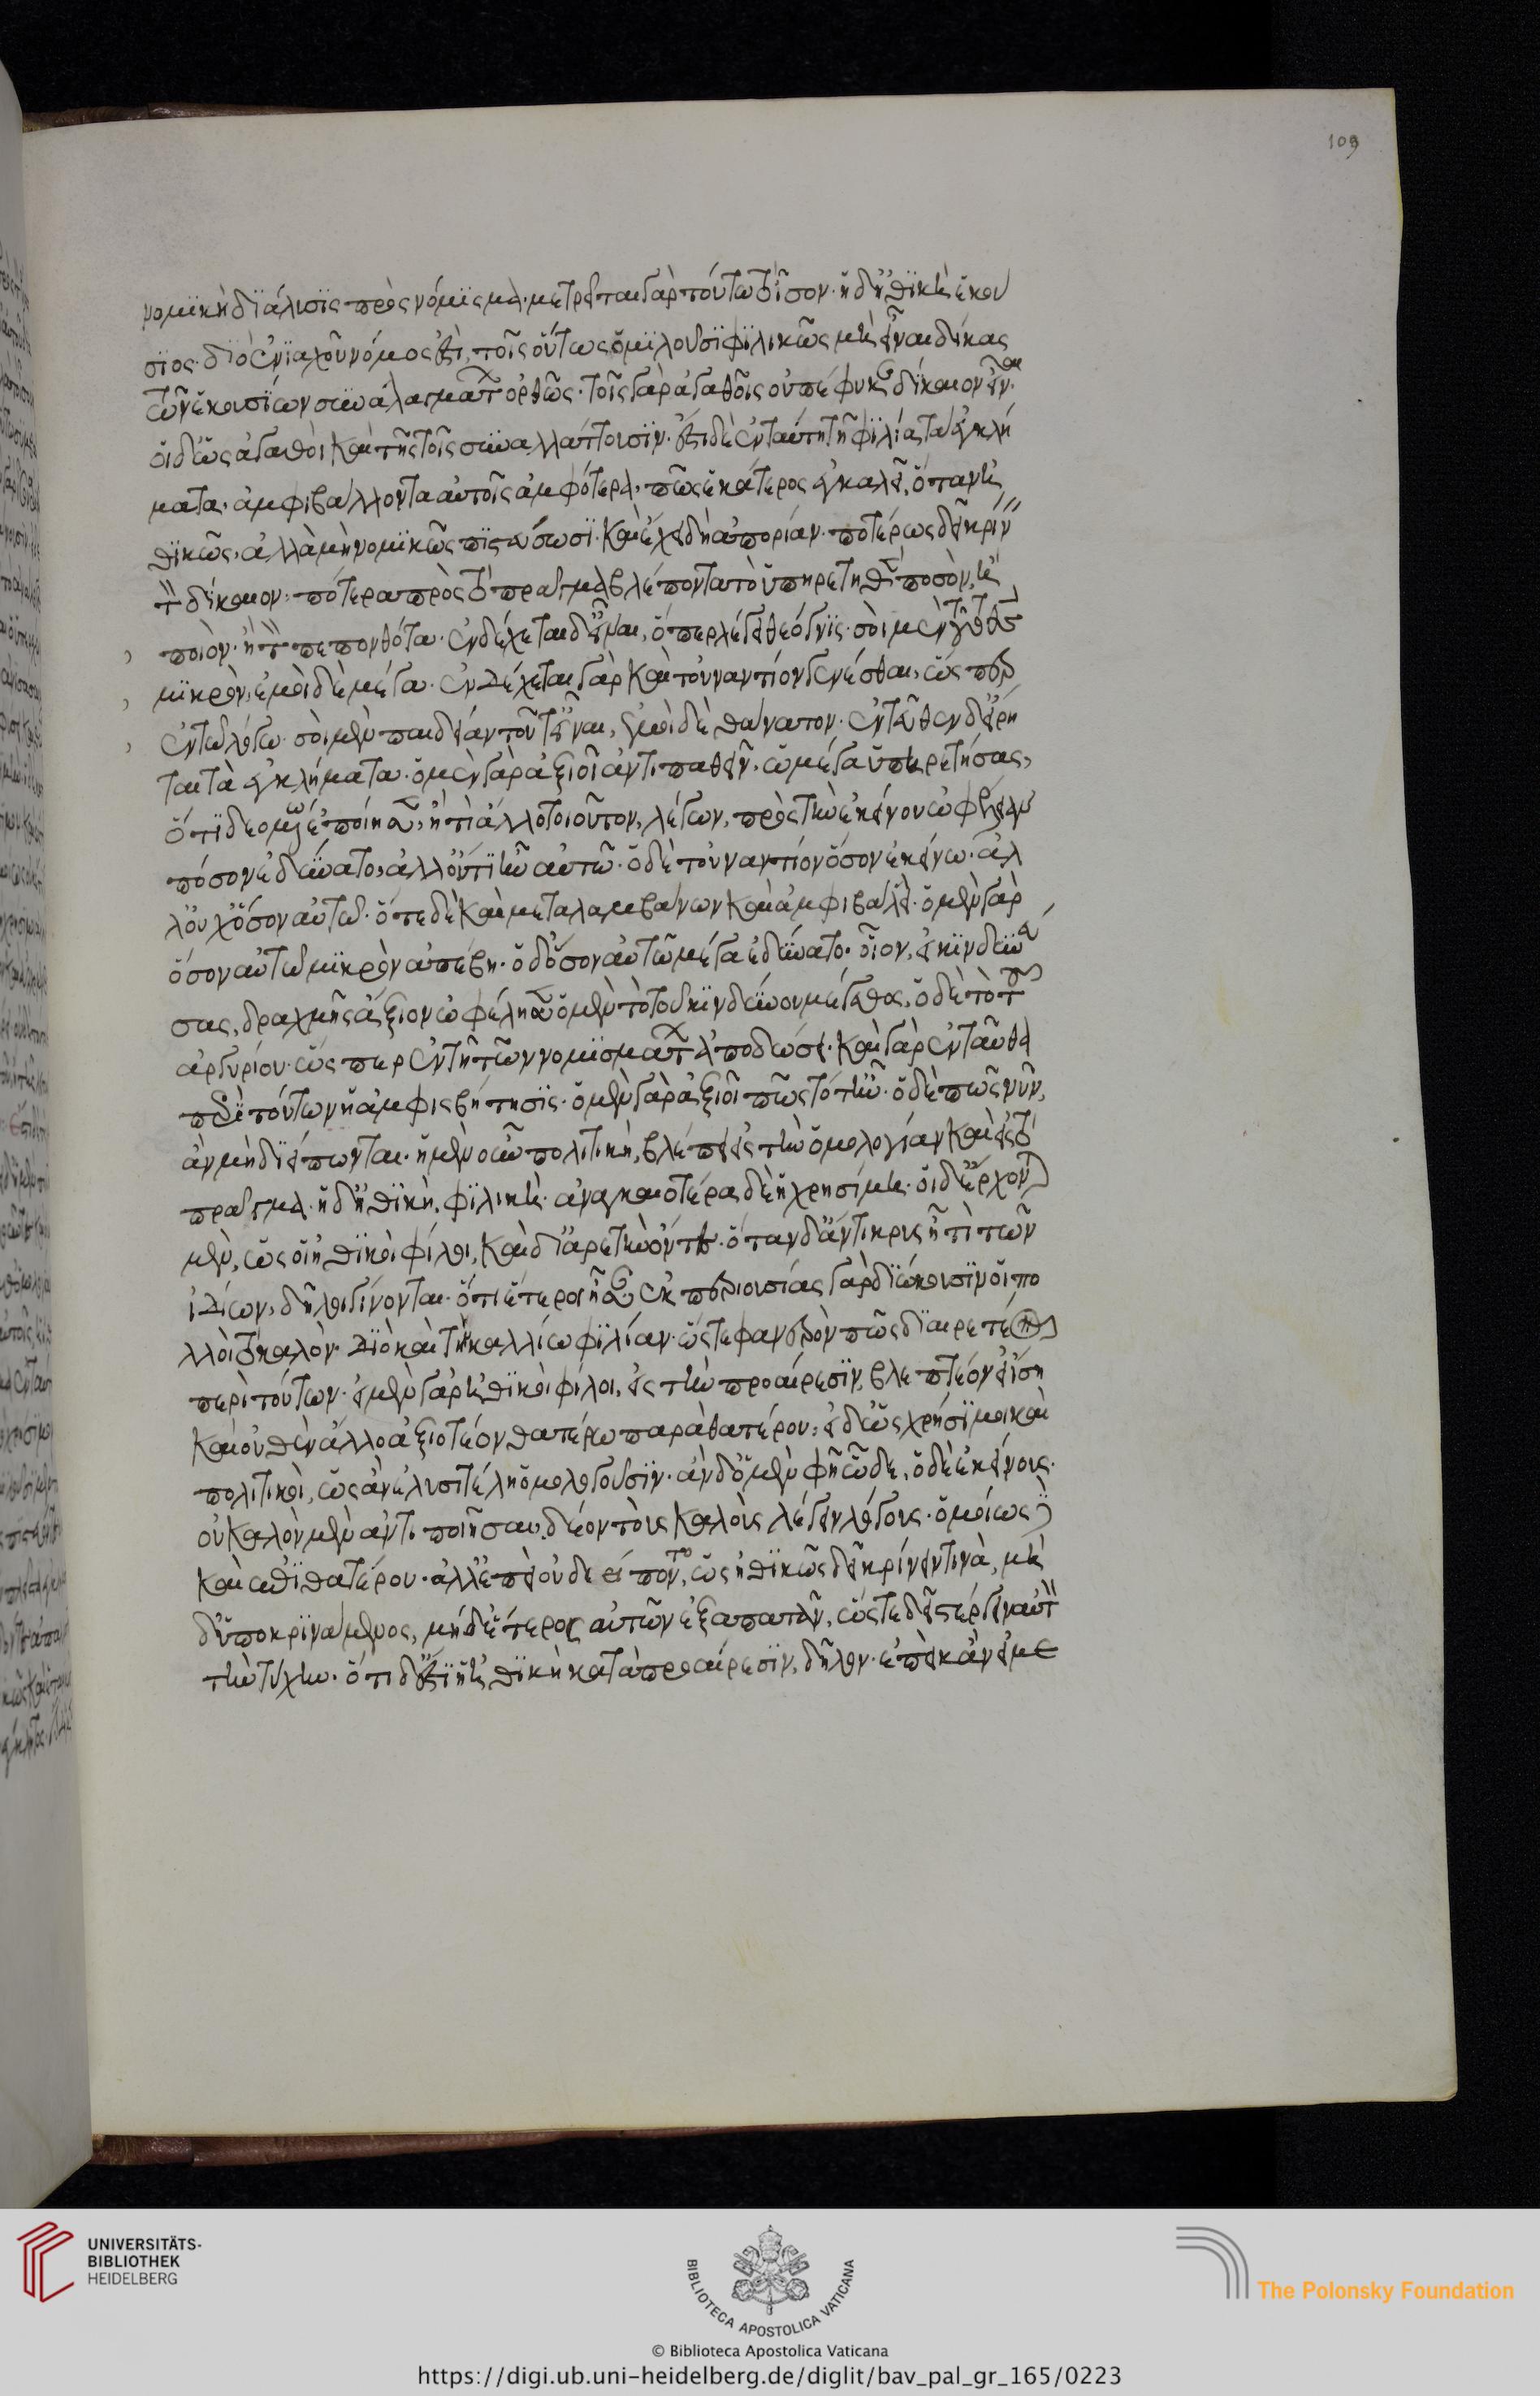 νομικὴ διάλισις πρὸς νόμισμα. μετρεῖται γὰρ τούτω τὸ ἴσον. ἡ δ' ἠθικὴ ἑκου
σιος. διὸ ἐνιαχοῦ νόμος ἐστὶ, τοῖς οὕτως ὁμιλουσι φιλικῶς μὴ εἶναι δίκας
τῶν ἑκουσίων συναλαγμάτων ὀρθῶς. τοῖς γὰρ ἀγαθοῖς οὐ πέφυκε δίκαιον εἶναι.
οἱ δ' ὡς ἀγαθοὶ καὶ πιστοῖς συναλλάττουσιν. ἔστι δὲ ἐν ταύτη τῆ φιλία τὰ ἐγκλή
ματα. ἀμφιβάλλοντα αὐτοῖς ἀμφότερα. πῶς ἑκάτερος ἐγκαλεῖ, ὅταν ἠ
θικῶς, ἀλλὰ μὴ νομικῶς πιστεύσωσι. καὶ ἔχει δὴ ἀπορίαν. ποτέρως δεῖ κρίνειν
τὸν δίκαιον. πότερα πρὸς τὸ πρᾶγμα βλέποντα τὸ ὑπηρετηθὲν ποσὸν, ἢ
ποιὸν. ἢ τὸν πεπονθότα. ἐνδέχεται δ' εἶναι, ὅπερ λέγει θεόγνις. σοὶ μὲν τοῦτο θεὰ
μικρὸν, ἐμοὶ δὲ μέγα. ἐνδέχεται γὰρ καὶ τοὐναντίον γενέσθαι, ὥσπερ
ἐν τῶ λόγω. σοὶ μὲν παιδιάν τοῦτ' εἶναι, ἐμοὶ δὲ θάνατον. ἐντεῦθεν δ' εἴρη
ται τὰ ἐγκλήματα. ὁ μὲν γὰρ ἀξιοῖ ἀντιπαθεῖν. ὡς μέγα ὑπηρετήσας,
ὅτι δεομένω ἐποίησεν, ἤ τι ἄλλο τοιοῦτον, λέγων, πρὸς τὴν ἐκείνου ὠφέλειαν
πόσον ἐδύνατο, ἀλλ' οὐ τί ἦν αὐτῶ. ὁ δὲ τοὐναντίον ὅσον ἐκείνω. ἀλ
λ' οὐχ ὅσον αὐτῶ. ὁτὲ δὲ καὶ μεταλαμβάνων καὶ ἀμφιβάλλει. ὁ μὲν γὰρ
ὅσον αὐτῶ μικρὸν ἀπέβη. ὁ δ' ὅσον αὐτῶ μέγα ἐδύνατο. οἷον, εἰ κινδυνεύ
σας, δραχμῆς ἄξιον ὠφέλησεν ὁ μὲν τὸ τοῦ κινδύνου μέγεθος, ὁ δὲ τὸ τοῦ
ἀργυρίου. ὥσπερ ἐν τῆ τῶν νομισμάτων ἀποδώσει. καὶ γὰρ ἐνταῦθα
περὶ τούτων ἡ ἀμφισβήτησις. ὁ μὲν γὰρ ἀξιοῖ πῶς τότ' ἦν. ὁ δὲ πῶς νῦν,
ἀν μὴ διείπωνται. ἡ μὲν οὖν πολιτικὴ, βλέπει εἰς τὴν ὁμολογίαν καὶ εἰς τὸ
πρᾶγμα. ἡ δ' ἠθικὴ, φιλικὴ. ἀναγκαιοτέρα δὲ ἡ χρησίμη. οἱ δ' ἄρχονται
μὲν, ὡς οἱ ἠθικοὶ φίλοι, καὶ δι' ἀρετὴν ὄντες. ὅταν δ' ἄντικρυς ἦ τι τῶν
ἰδίων, δῆλοι γίνονται. ὅτι ἕτεροι ἦσαν, ἐκ περιουσίας γὰρ διώκουσιν οἱ πο
λλοὶ τὸ καλὸν. διὸ καὶ τὴν καλλίω φιλίαν. ὥστε φανερὸν πῶς διαιρετέον
περὶ τούτων. εἰ μὲν γὰρ ἠθικοὶ φίλοι, εἰς τὴν προαίρεσιν, βλεπτέον εἰ ἴση
καὶ οὐθὲν ἄλλο ἀξιοτέον θατέρω παρὰ θατέρου. εἰ δ' ὡς χρήσιμοι καὶ
πολιτικοὶ, ὡς ἀν ἐλυσιτέλη ὁμολογοῦσιν. ἀν δ' ὁ μὲν φῆ ὧδε, ὁ δὲ ἐκείνως.
οὐ καλὸν μὲν ἀντιποιῆσαι, δέον τοὺς καλοὺς λέγειν λόγους. ὁμοίως δὲ
καὶ ἐπὶ θατέρου. ἀλλ' ἐπεὶ οὐ διείποντο, ὡς ἠθικῶς δεῖ κρίνειν τινὰ, μὴ
δ' ὑποκρινάμενος, μηδ' ἕτερος αὐτῶν ἐξαπατᾶν, ὥστε δεῖ στέργειν αὐτὸν
τὴν τύχην. ὅτι δ' ἐστὶν ἡ ἠθικὴ κατὰ προαίρεσιν, δῆλον. ἐπεὶ κἀν εἰ με
109
UNIVERSITÄTS-
BIBLIOTHEK
HEIDELBERG
BIBLIOTECA APOSTOLICA VATICANA
The Polonsky Foundation
© Biblioteca Apostolica Vaticana
https://digi.ub.uni-heidelberg.de/diglit/bav_pal_gr_165/0223